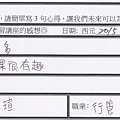 ,請簡單寫3句心得,讓我們未來可以為
習講座的感想◎ 日期:西元 2015
多
課很有趣
瑄 職業:行管